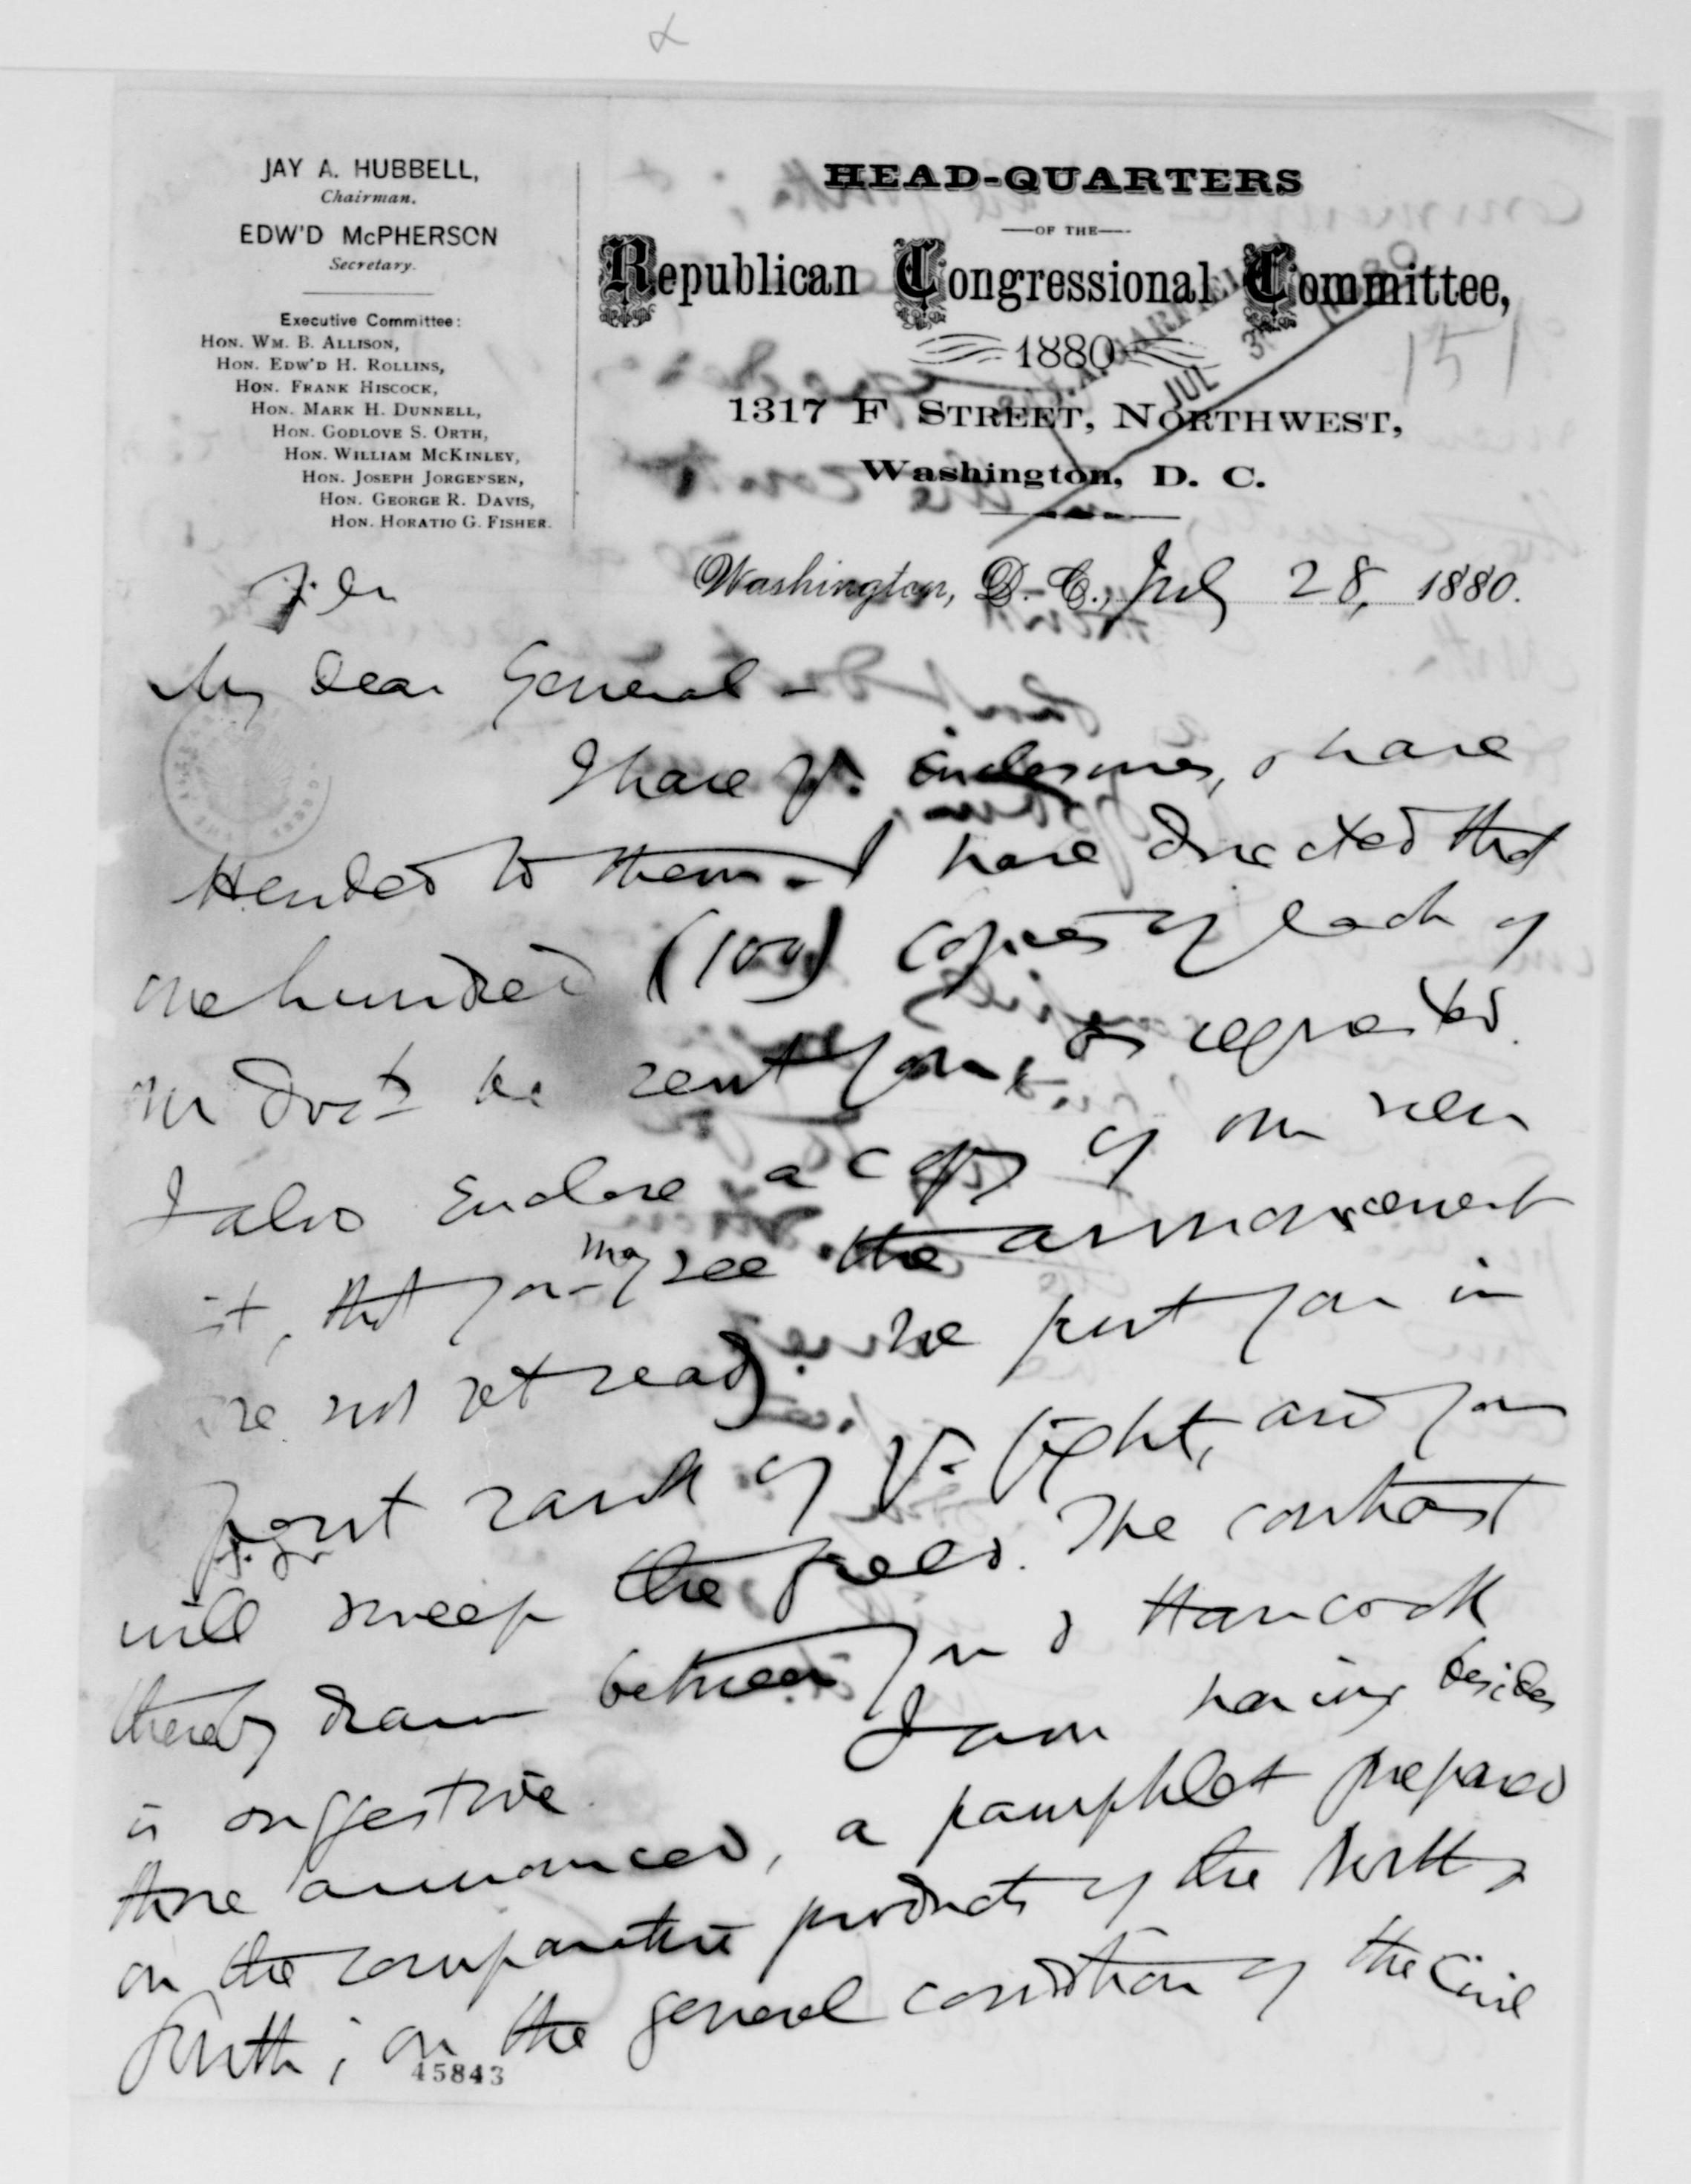 JAY A. HUBBELL,
Chairman.
EDW'D McPHERSON
Secretary.
Executive Committee:
HON. WM. B. ALLISON,
HON. EDW'D H. ROLLINS,
HON. FRANK HISCOCK,
HON. MARK H. DUNNELL,
HON. GODLOVE S. ORTH,
HON. WILLIAM McKINLEY,
HON. JOSEPH JORGENSEN,
HON. GEORGE R. DAVIS,
HON. HORATIO G. FISHER.
HEAD-QUARTERS
OF THE
Republican Congressional Committee,
1880
1317 F STREET, NORTHWEST,
Washington, D. C.
151
JUL 30
Washington, D. C., July 28, 1880.
My Dear General -
I have yr. enclosures, & have
attended to them. I have directed that
one hundred (100) copies of each of
our Docts be sent you, as requested.
I also enclose a copy of our new
list, that you may see the announcement
are not yet ready. We put you in
front rank of yr. fight, and you
will sweep the field. The contrast
thereby drawn between you & Hancock
is suggestive. I am having besides
those announced, a pamphlet prepared
on the comparative products of the North &
South; on the general condition of the Civil
45843